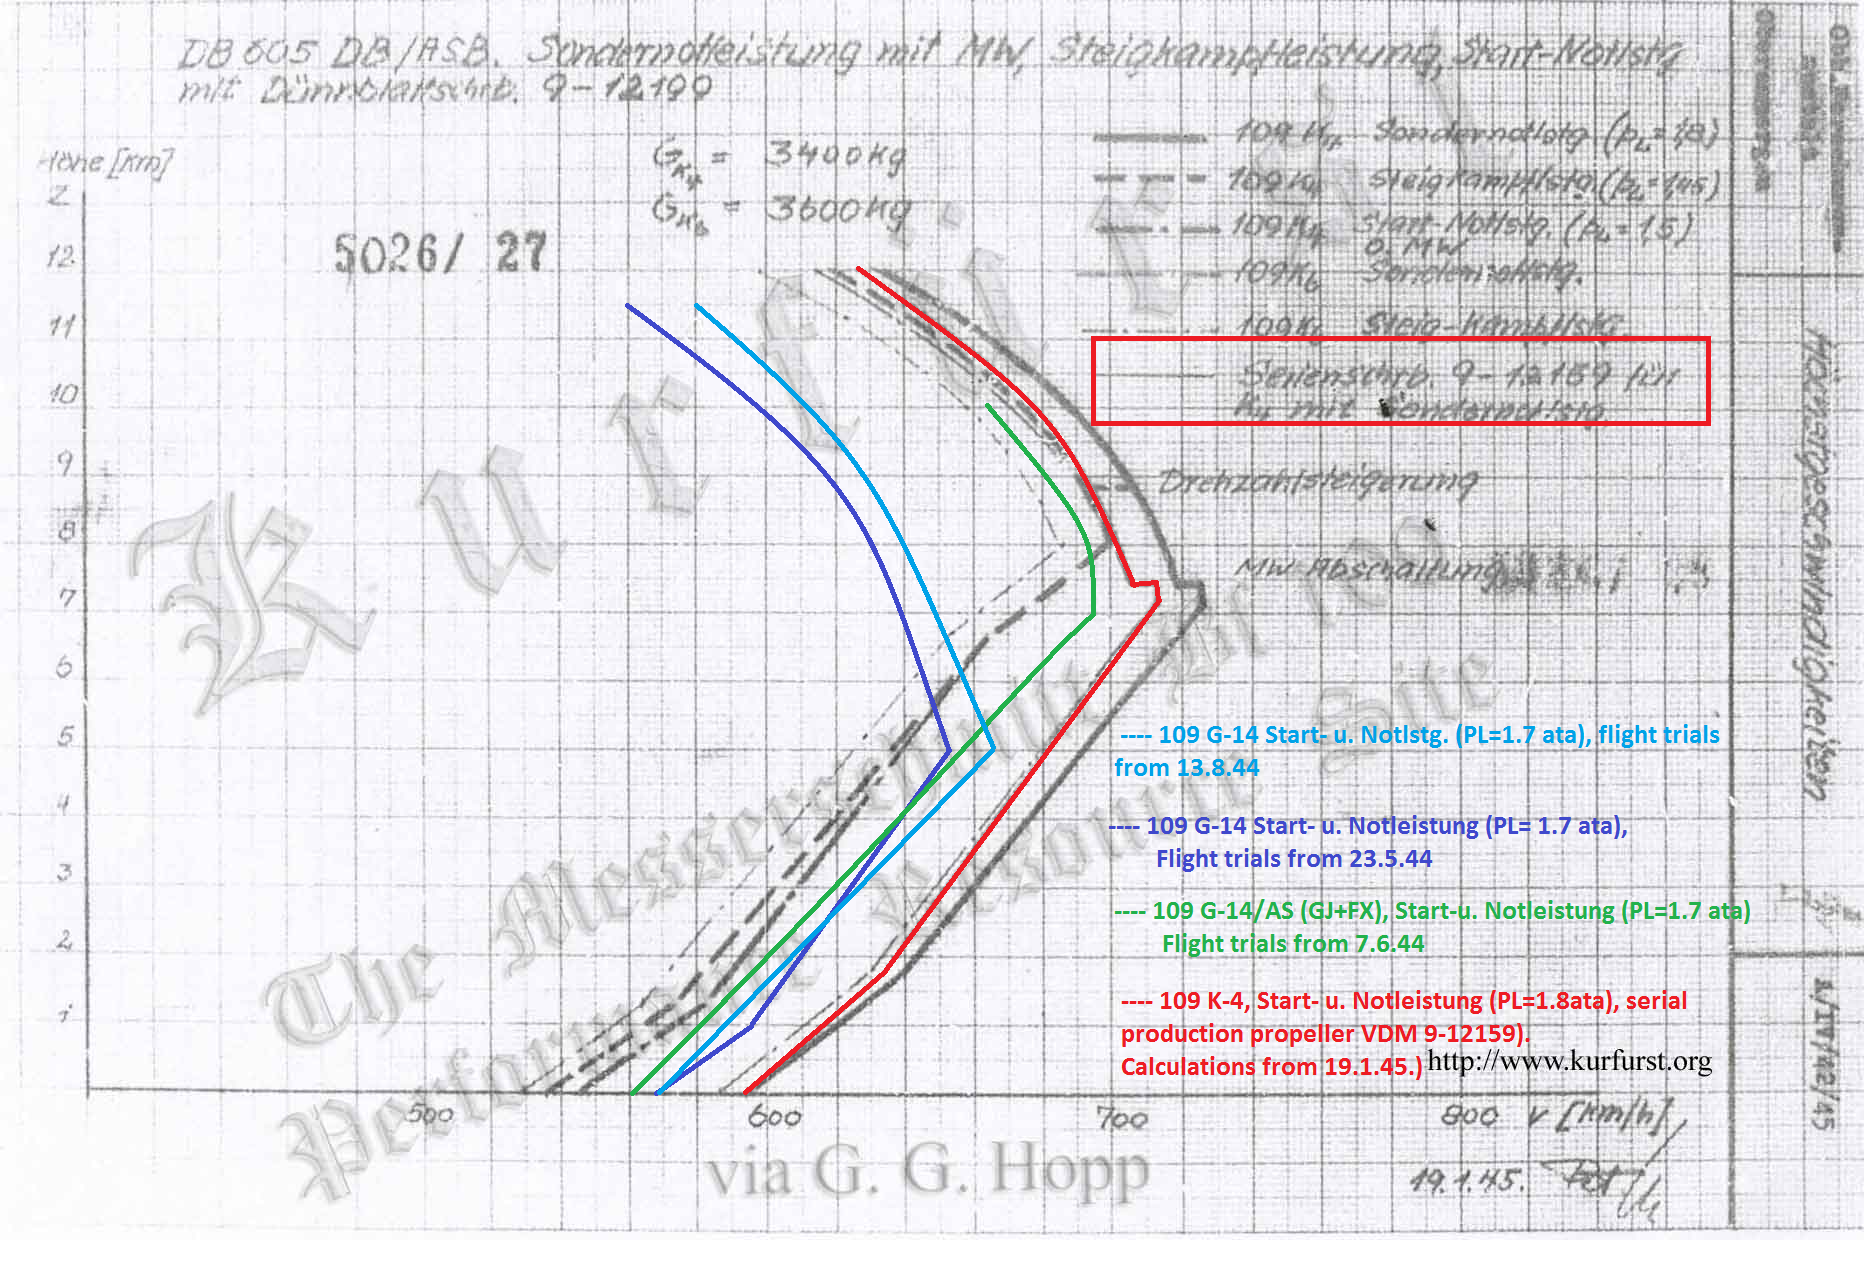 DB 605 DB/ASB. Sondernotleistung mit MW, Steigkampfleistung, Start-Notlstg
mit Dünnblattschrb. 9-12199
Höhe [km]
GK4 = 3400kg
GK6 = 3600kg
5026/ 27
109 K4 Sondernotlstg (pL=1,8)
109 K4 Steigkampflstg (pL=1,45)
109 K4 Start-Notlstg. (pL=1,5)
o. MW
109 K6 Sondernotlstg.
109 K6 Steig-Kampflstg
Serienschrb 9-12159 für
K4 mit Sondernotlstg.
Drehzahlsteigerung
MW Abschaltung
Höchstgeschwindigkeiten
12
11
10
9
8
7
6
5
4
3
2
1
500
600
700
800 v [km/h]
Kurfürst
The Messerschmitt Bf 109
Performance Resource Site
---- 109 G-14 Start- u. Notlstg. (PL=1.7 ata), flight trials
from 13.8.44
---- 109 G-14 Start- u. Notleistung (PL= 1.7 ata),
Flight trials from 23.5.44
---- 109 G-14/AS (GJ+FX), Start-u. Notleistung (PL=1.7 ata)
Flight trials from 7.6.44
---- 109 K-4, Start- u. Notleistung (PL=1.8ata), serial
production propeller VDM 9-12159).
Calculations from 19.1.45.)
http://www.kurfurst.org
via G. G. Hopp
19.1.45.